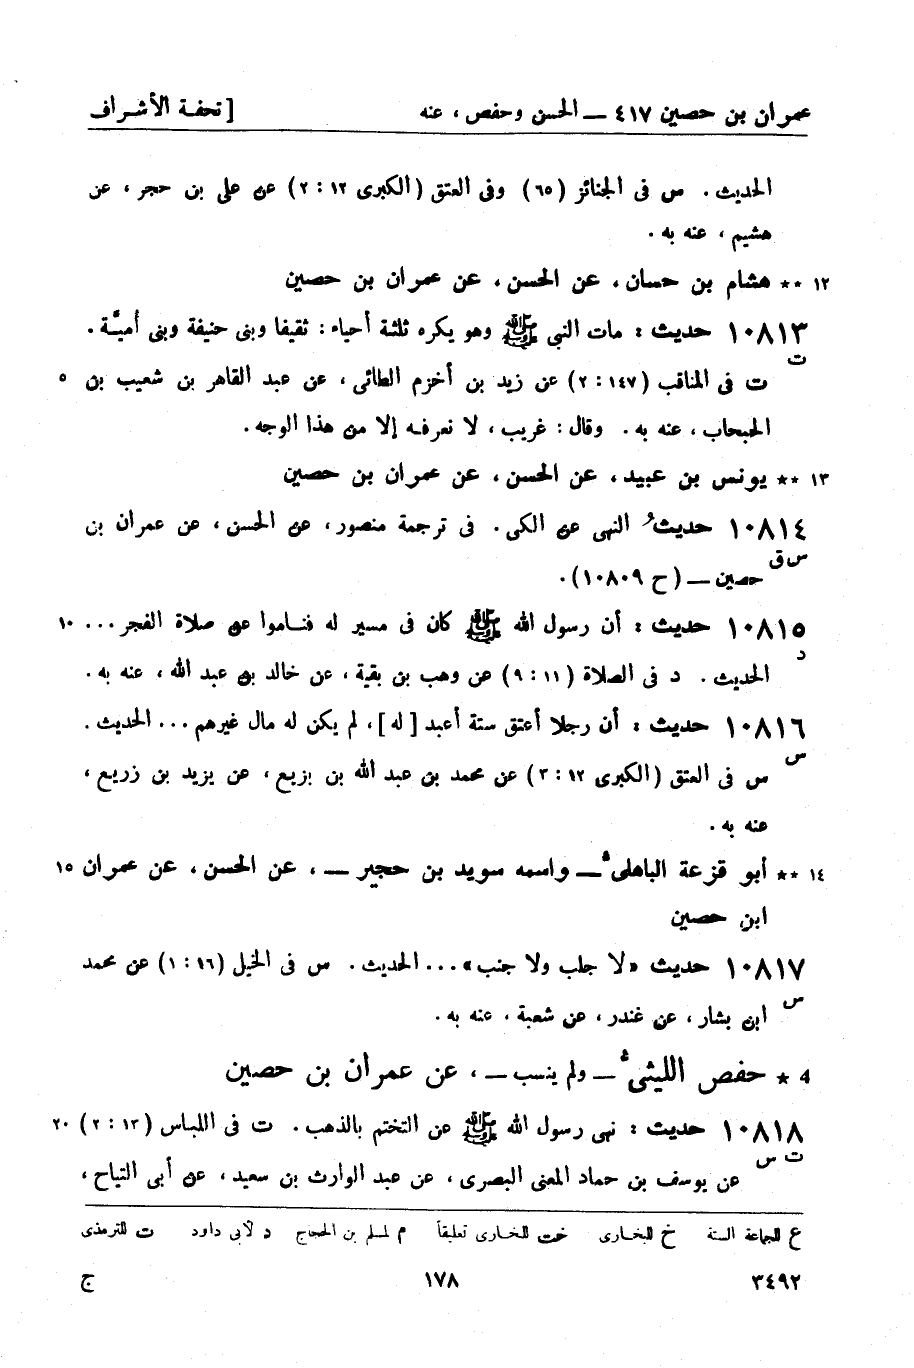 عمران بن حصين ٤١٧ — الحسن وحفص ، عنه [ تحفة الأشراف
الحديث . س فى الجنائز (٦٥) وفى العتق (الكبرى ١٢ : ٢) عن على بن حجر ، عن
هشيم ، عنه به .
١٢ ** هشام بن حسان، عن الحسن، عن عمران بن حصين
١٠٨١٣ حديث : مات النبى ﷺ وهو يكره ثلثة أحياء : ثقيفا وبنى حنيفة وبنى أميّة .
ت
ت فى المناقب (١٤٧ : ٢) عن زيد بن أخزم الطائى ، عن عبد القاهر بن شعيب بن ٥
الحبحاب ، عنه به . وقال : غريب ، لا نعرفه إلا من هذا الوجه .
١٣ ** يونس بن عبيد، عن الحسن، عن عمران بن حصين
١٠٨١٤ حديثُ النهى عن الكى . فى ترجمة منصور ، عن الحسن ، عن عمران بن
س ق
حصين — (ح ١٠٨٠٩) .
١٠٨١٥ حديث : أن رسول الله ﷺ كان فى مسير له فنـاموا عن صلاة الفجر ... ١٠
د
الحديث . د فى الصلاة (١١ : ٩) عن وهب بن بقية ، عن خالد بن عبد الله ، عنه به .
١٠٨١٦ حديث : أن رجلا أعتق ستة أعبد [ له ] ، لم يكن له مال غيرهم ... الحديث .
س
س فى العتق (الكبرى ١٢ : ٣) عن محمد بن عبد الله بن بزيع ، عن يزيد بن زريع ،
عنه به .
١٤ ** أبو قزعة الباهلى — واسمه سويد بن حجير — ، عن الحسن ، عن عمران ١٥
ابن حصين
١٠٨١٧ حديث «لا جلب ولا جنب» ... الحديث . س فى الخيل (١٦ : ١) عن محمد
س
ابن بشار ، عن غندر ، عن شعبة ، عنه به .
4 * حفص الليثى — ولم ينسب — ، عن عمران بن حصين
١٠٨١٨ حديث : نهى رسول الله ﷺ عن التختم بالذهب . ت فى اللباس (١٣ : ٢) ٢٠
ت س
عن يوسف بن حماد المعنى البصرى ، عن عبد الوارث بن سعيد ، عن أبى التياح ،
ع للجماعة الستة خ للبخـارى خت للبخـارى تعليقاً م لمسلم بن الحجاج د لأبى داود ت للترمذى
٣٤٩٢ ١٧٨ ج